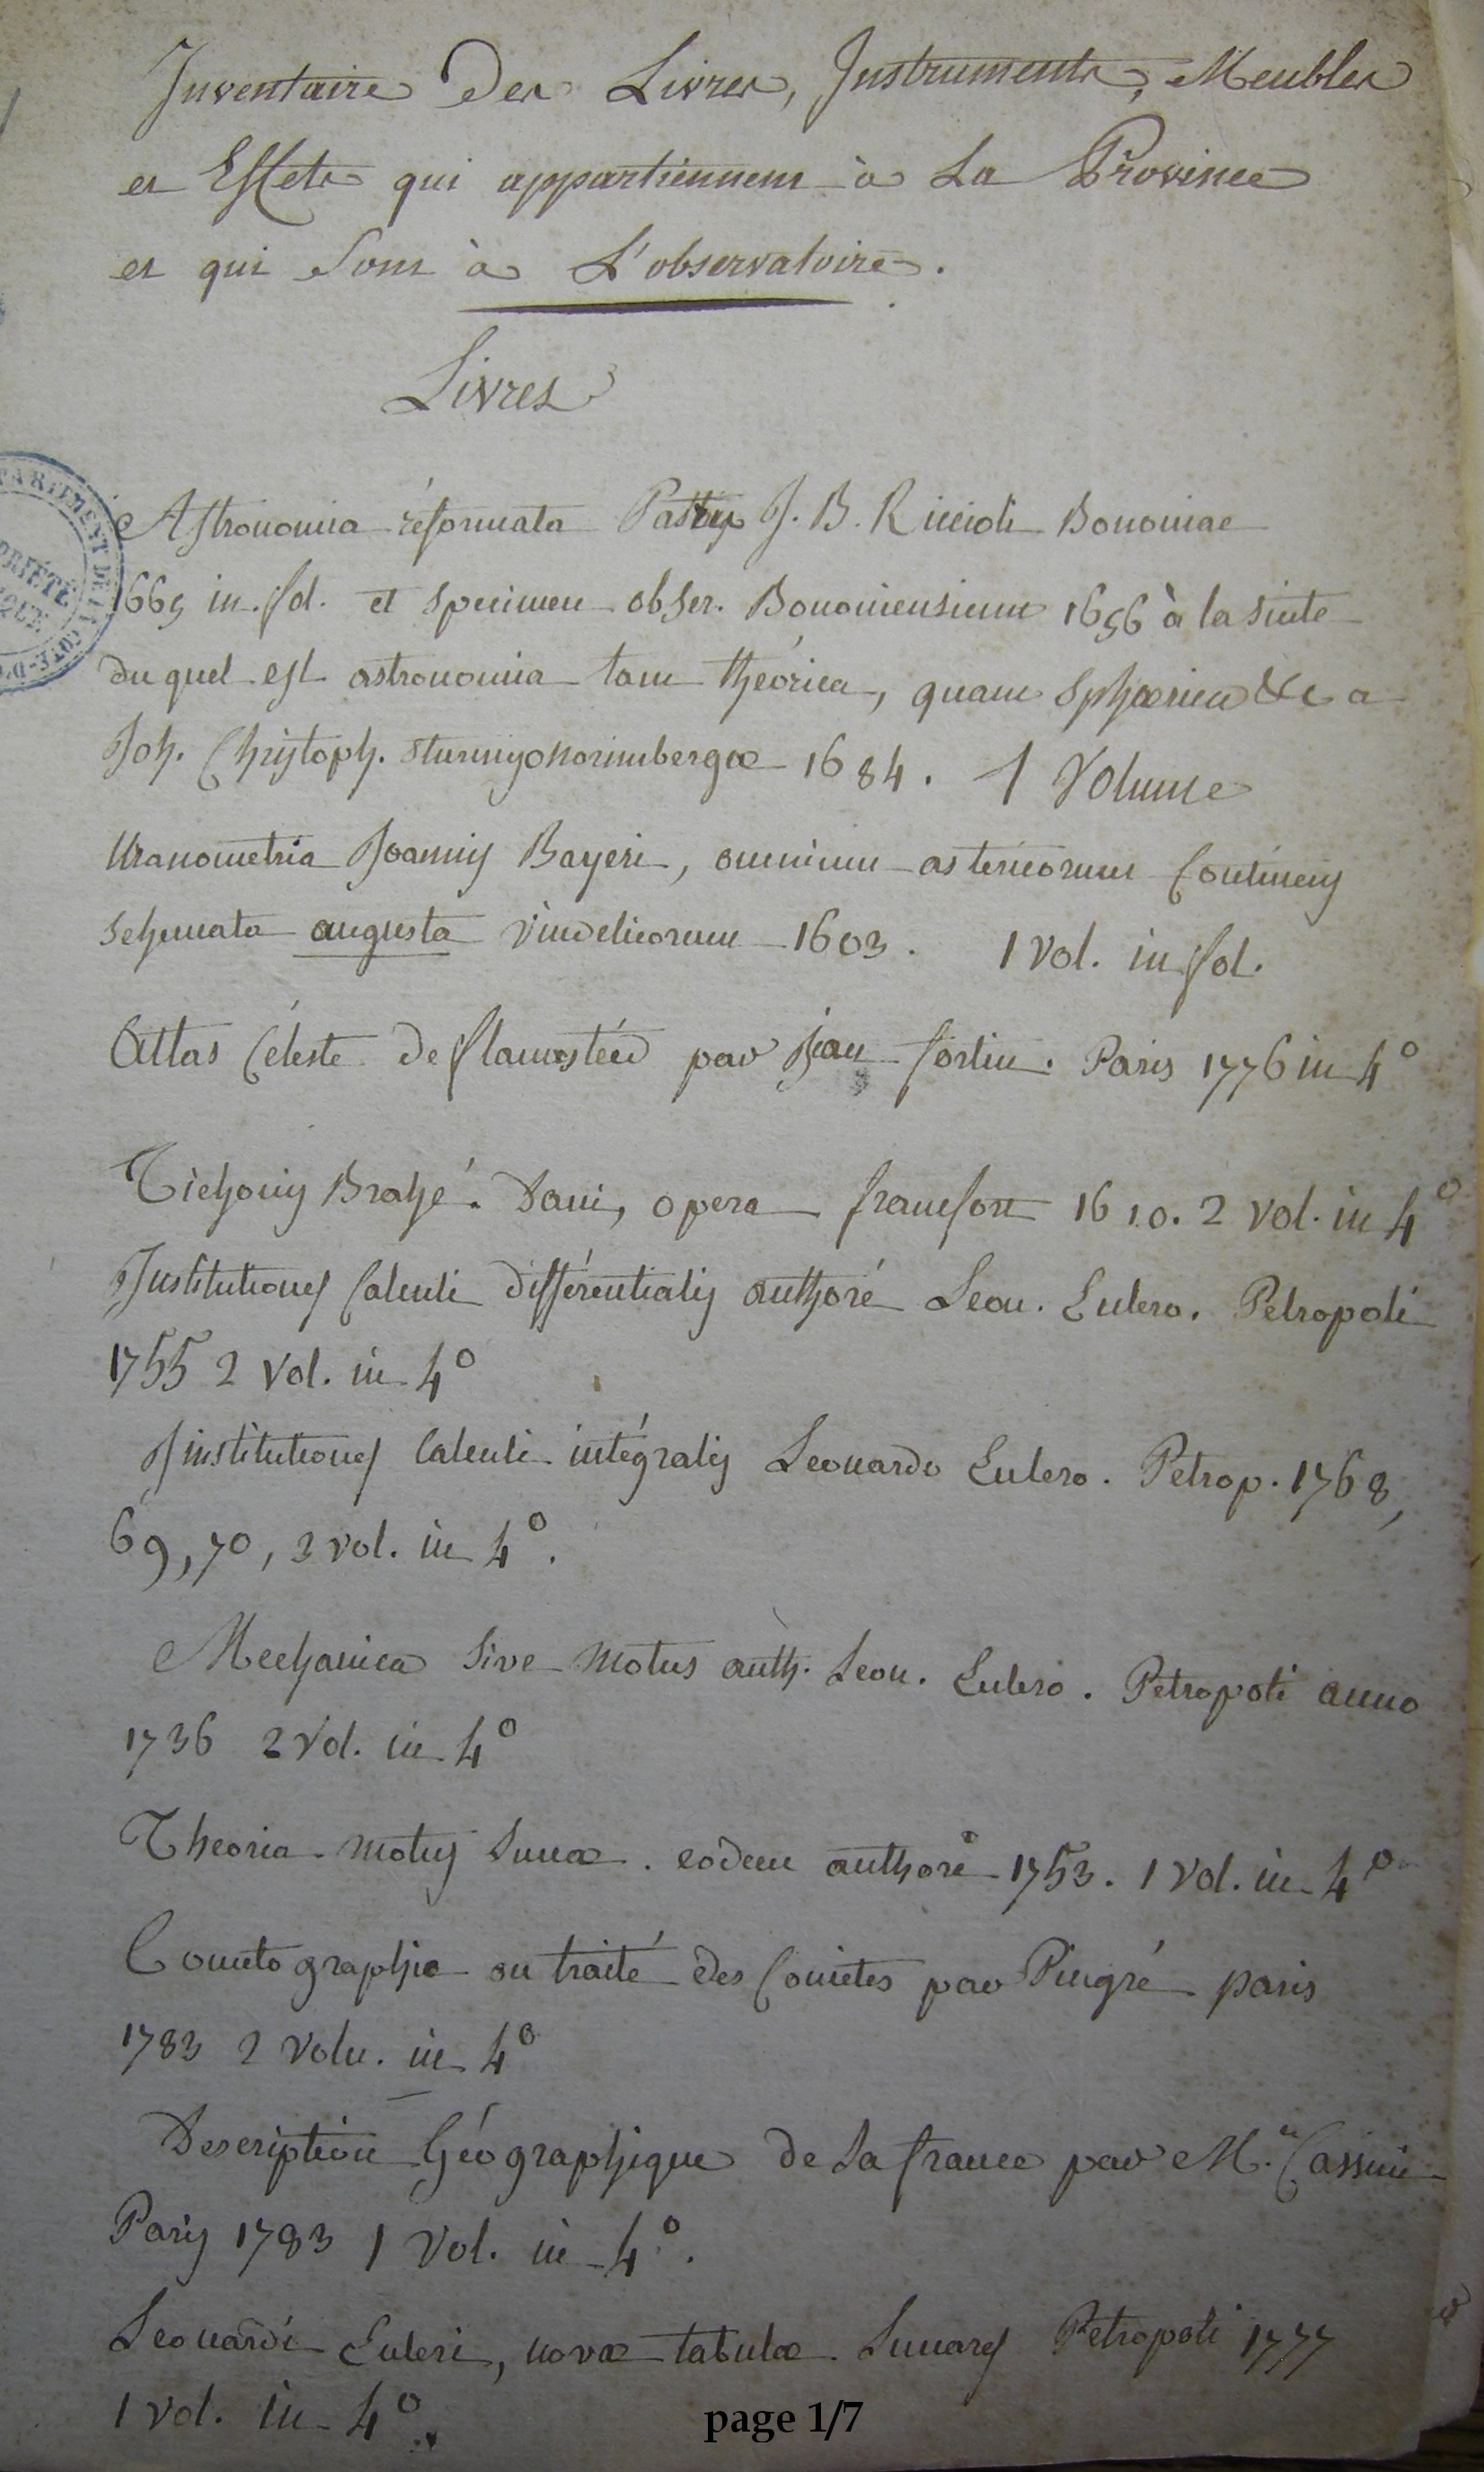 Inventaire Des Livres, Instruments, Meubles
et Effets qui appartiennent à La Province
et qui Sont à L'observatoire.
Livres
PARTEMENT DE LA COTE-D'
PRIÉTÉ
Astronomia réformata J. B. Riccioli Bononiae
1665 in. fol. et specimen obser. Bononiensium 1656 à la suite
du quel est astronomia tam théorica, quam sphærica &c a
Joh. Christoph. Sturmijo norimbergæ 1684. 1 Volume
Uranometria Joannis Bayeri, omnium astericorum Continens
schemata augusta vindelicorum 1603. 1 Vol. in fol.
Atlas Céleste de flamstéed par Jean fortin. Paris 1776 in 4°
Tichonis Brahé. Dani, opera francfort 1610. 2 vol. in 4°
Institutiones Calculi différentialis authoré Leon. Eulero. Petropoli
1755 2 Vol. in 4°
Institutiones Calculi intégralis Leonardo Eulero. Petrop. 1768,
69, 70, 3 vol. in 4°.
Mechanica Sive Motus auth. Leon. Eulero. Petropoli anno
1736 2 Vol. in 4°
Theoria Motus Lunæ. eodem authore 1753. 1 Vol. in 4°
Cometographie ou traité des Comètes par Pingré paris
1783 2 Volu. in 4°
Description Géographique de La france par M. Cassini
Paris 1783 1 Vol. in 4°.
Leonardi Euleri, novæ tabulæ Lunares Petropoli 1777
1 vol. in 4°.
page 1/7